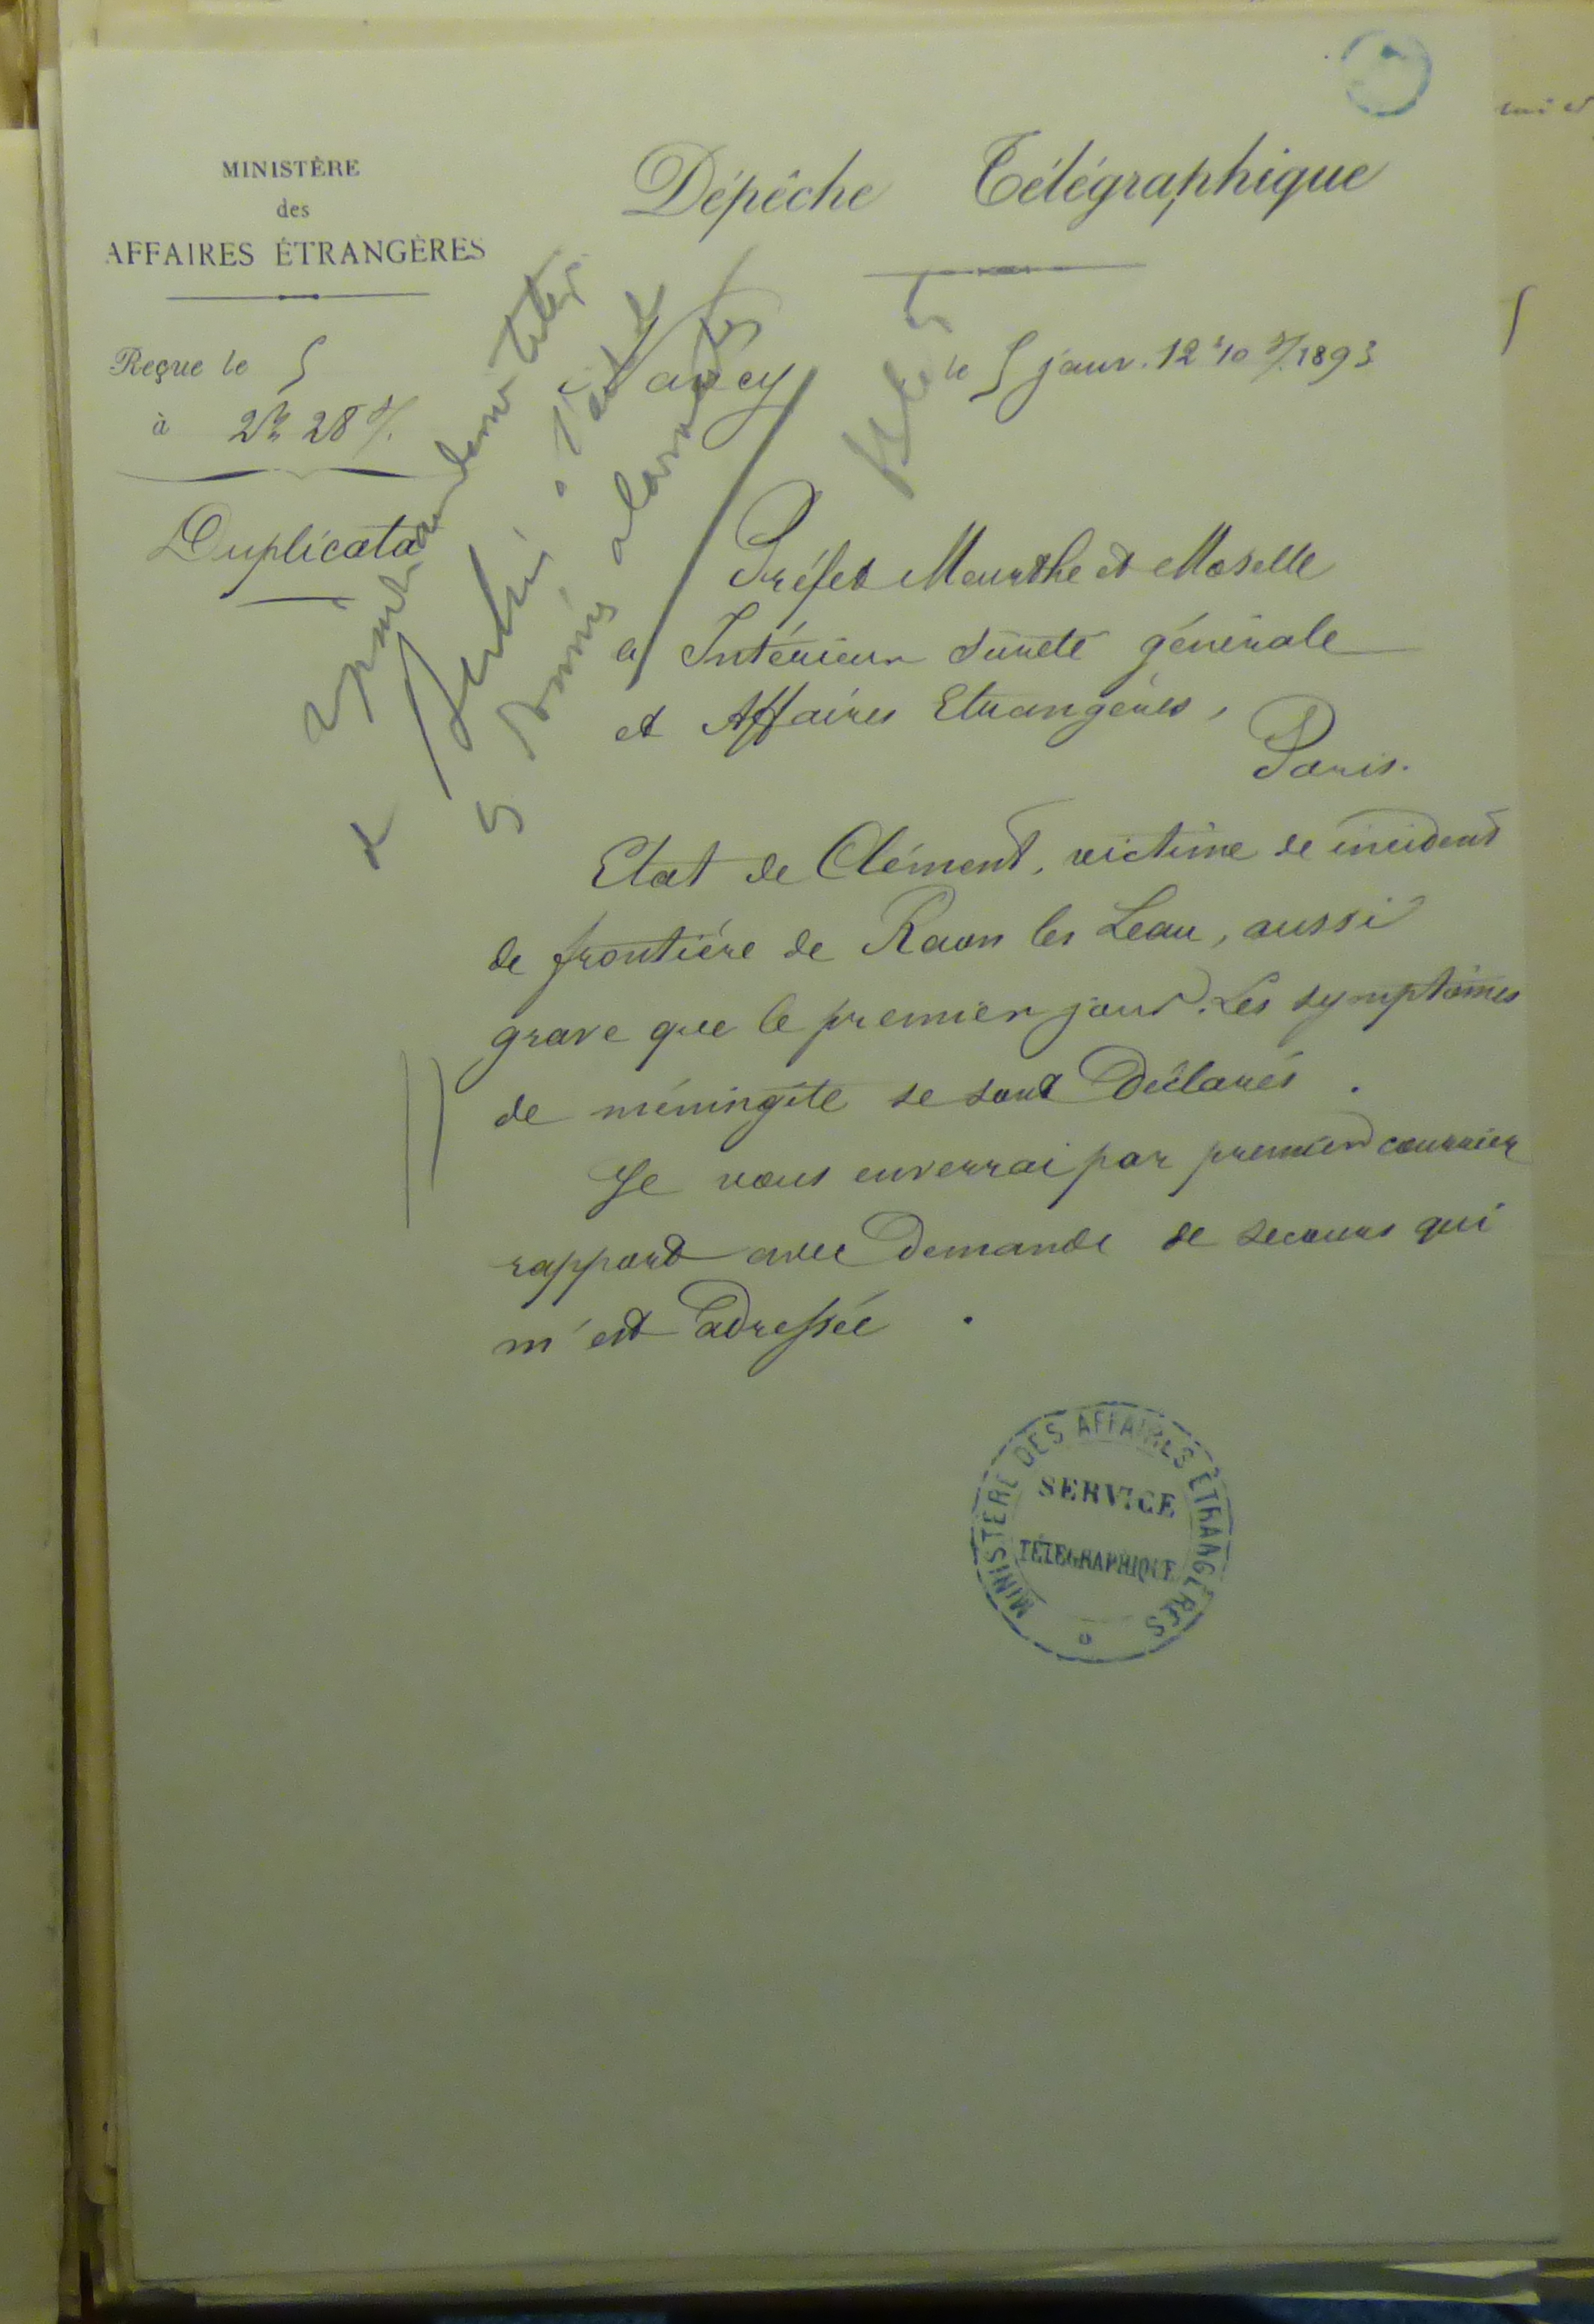 MINISTÈRE
des
AFFAIRES ÉTRANGÈRES
Dépêche Télégraphique
Reçue le 5
à 2h 28 s/.
Duplicata
Nancy le 5 janv. 12h10 s/. 1893
Préfet Meurthe et Moselle
à Intérieur sureté générale
et Affaires Etrangères,
Paris.
Etat de Clément, victime de incident
de frontière de Raon les Leau, aussi
grave que le premier jour. Les symptômes
de méningite se sont déclarés.
Je vous enverrai par premier courrier
rapport avec demande de secours qui
m'est adressée.
MINISTÈRE DES AFFAIRES ÉTRANGÈRES
SERVICE
TÉLÉGRAPHIQUE